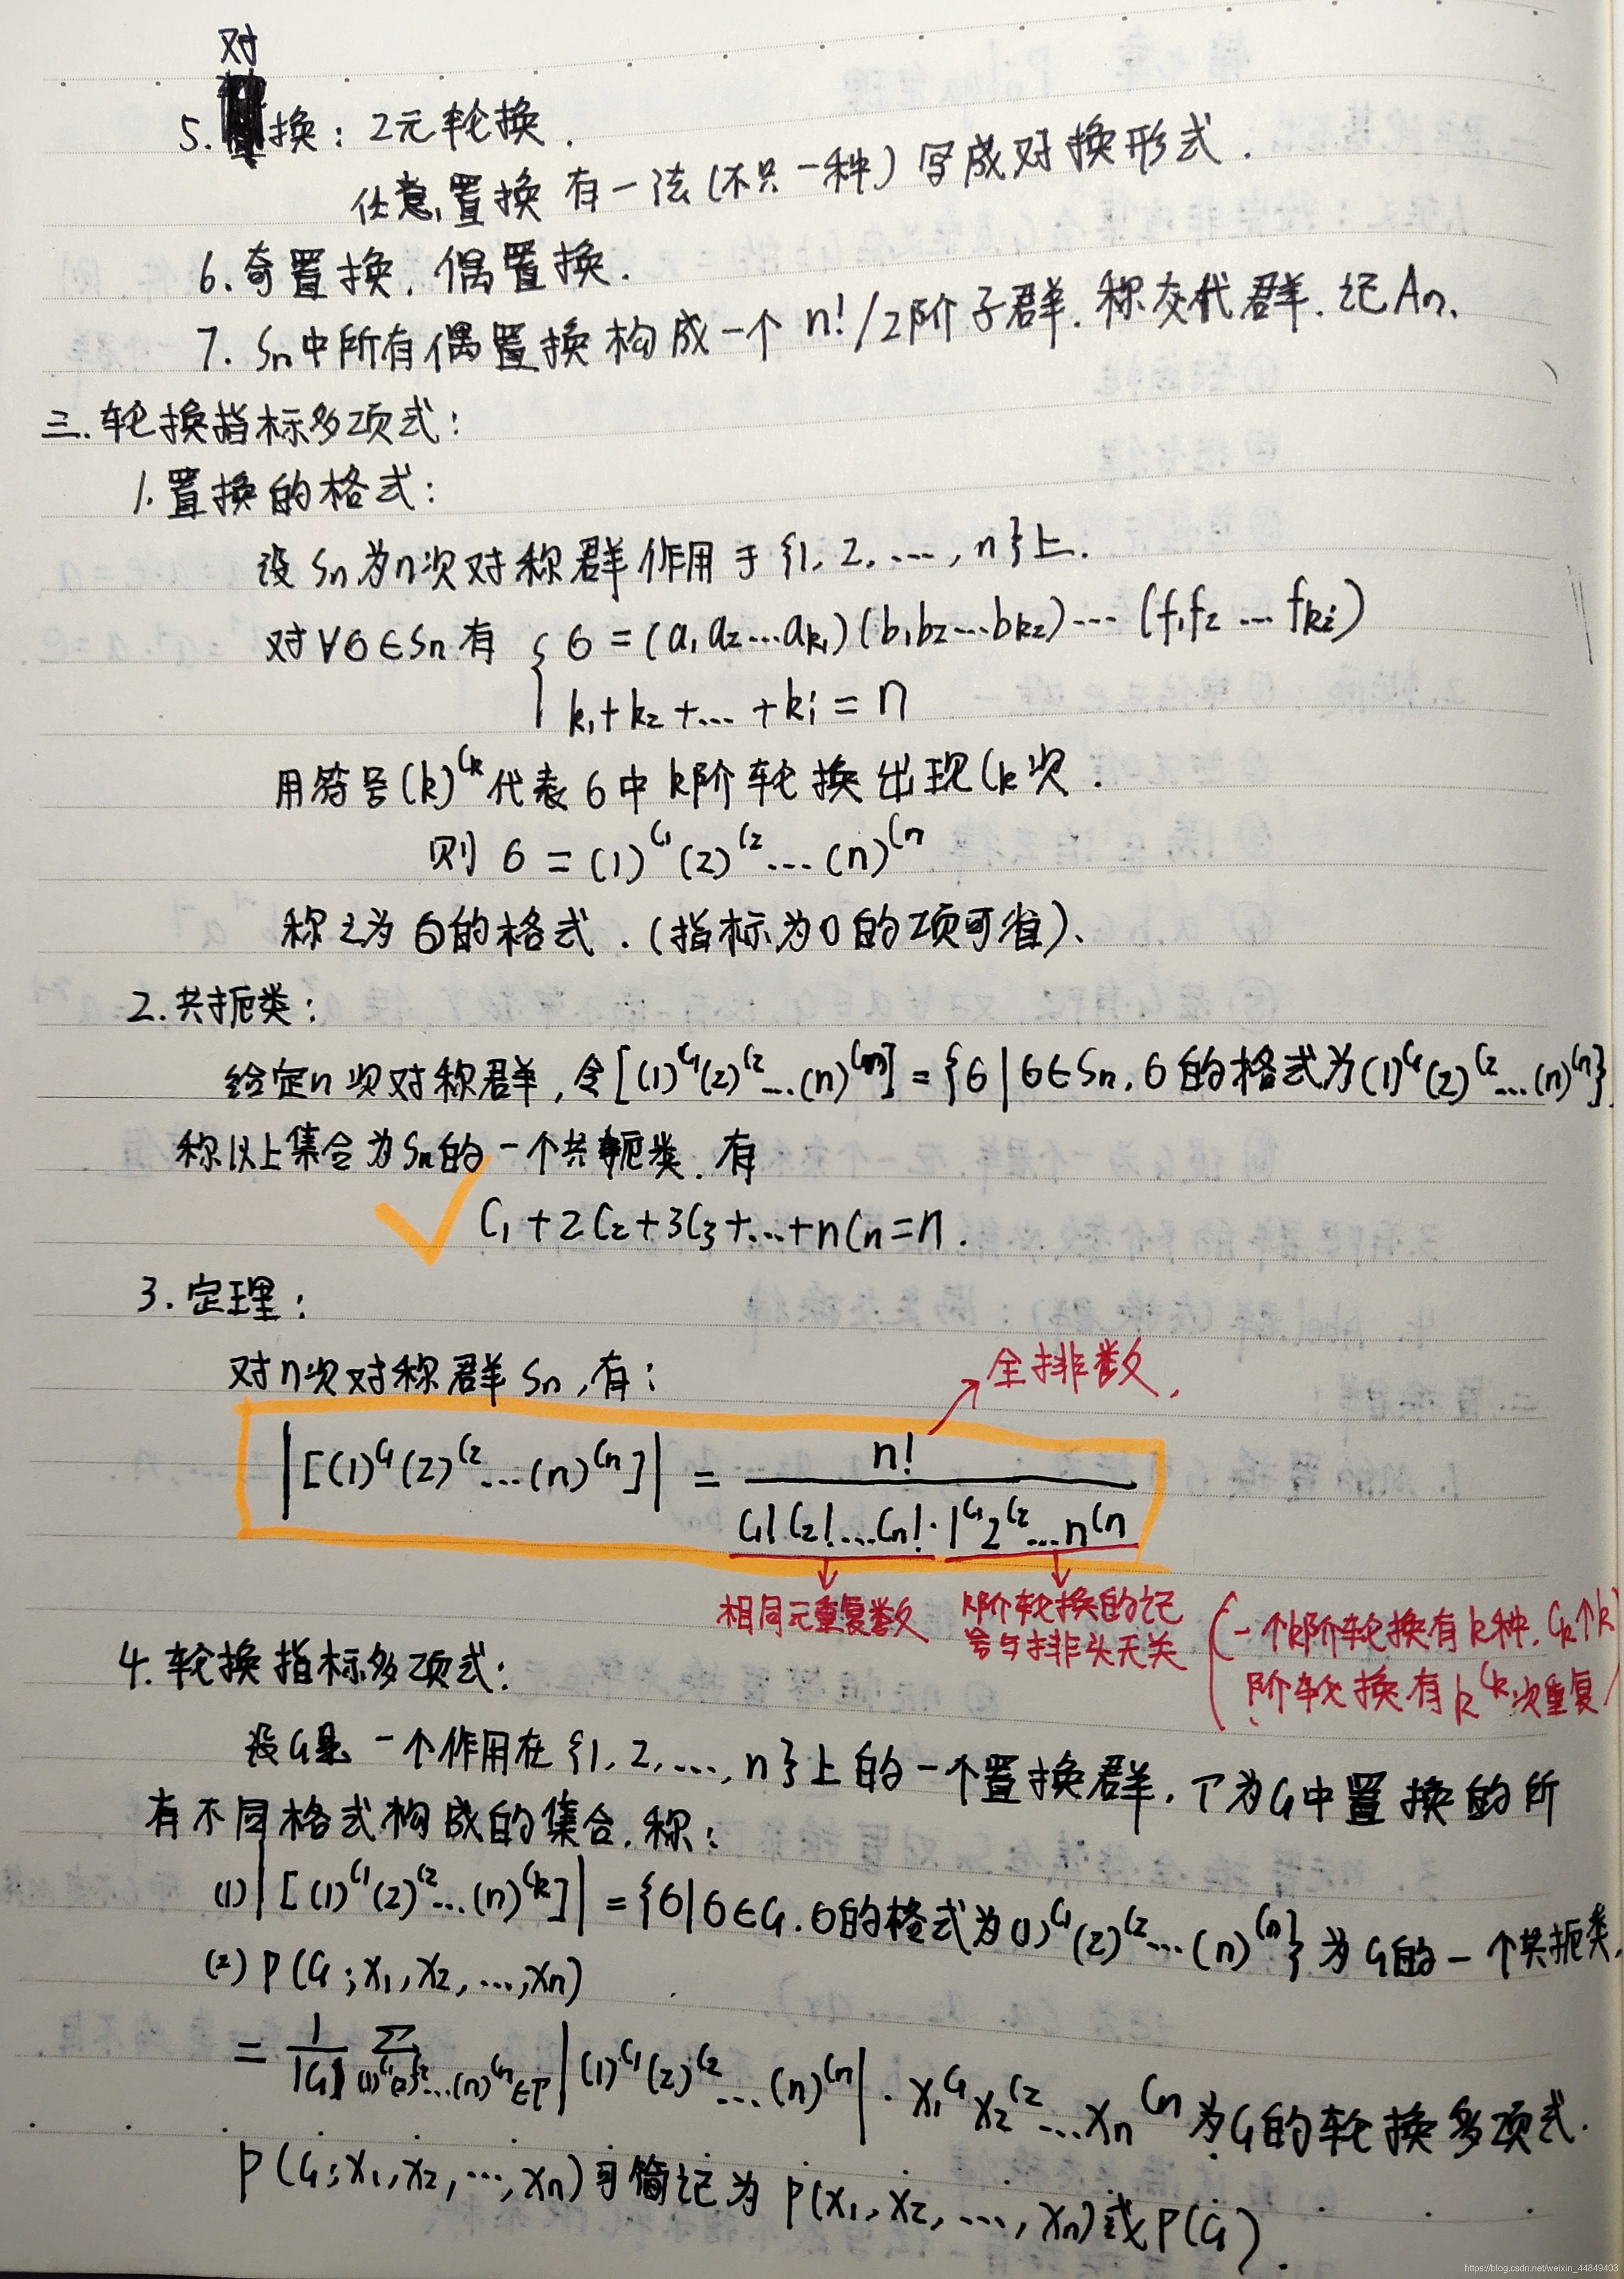 对
5. 换：2元轮换．
任意置换有一法（不只一种）写成对换形式．
6. 奇置换，偶置换．
7. Sn中所有偶置换构成一个 n!/2阶子群．称交代群．记An．
三. 轮换指标多项式：
1. 置换的格式：
设Sn为n次对称群作用于{1, 2, …, n}上．
对∀σ∈Sn有 { σ = (a₁a₂…a_k₁)(b₁b₂…b_k₂)…(f₁f₂…f_ki)
k₁+k₂+…+ki = n
用符号(k)^Ck代表σ中k阶轮换出现Ck次．
则 σ = (1)^C₁(2)^C₂…(n)^Cn
称之为σ的格式．（指标为0的项可省）、
2. 共扼类：
给定n次对称群，令[(1)^C₁(2)^C₂…(n)^Cn] = {σ|σ∈Sn, σ的格式为(1)^C₁(2)^C₂…(n)^Cn}
称以上集合为Sn的一个共轭类．有
C₁+2C₂+3C₃+…+nCn=n．
3. 定理：
对n次对称群Sn，有：
全排数，
|[(1)^C₁(2)^C₂…(n)^Cn]| = n! / (C₁!C₂!…Cn!·1^C₁2^C₂…n^Cn)
相同元重复数 k阶轮换的记
号与排头无关
(一个k阶轮换有k种，Ck个k
阶轮换有k^Ck次重复)
4. 轮换指标多项式：
设G是一个作用在{1, 2, …, n}上的一个置换群．P为G中置换的所
有不同格式构成的集合．称：
(1) |[(1)^C₁(2)^C₂…(n)^Ck]| = {σ|σ∈G. σ的格式为(1)^C₁(2)^C₂…(n)^Cn} 为G的一个共扼类．
(2) P(G; x₁, x₂, …, xn)
= 1/|G| Σ_{(1)^C₁(2)^C₂…(n)^Cn∈P} |(1)^C₁(2)^C₂…(n)^Cn|·x₁^C₁x₂^C₂…xn^Cn 为G的轮换多项式．
P(G; x₁, x₂, …, xn)可简记为 P(x₁, x₂, …, xn)或P(G)．
https://blog.csdn.net/weixin_44849403